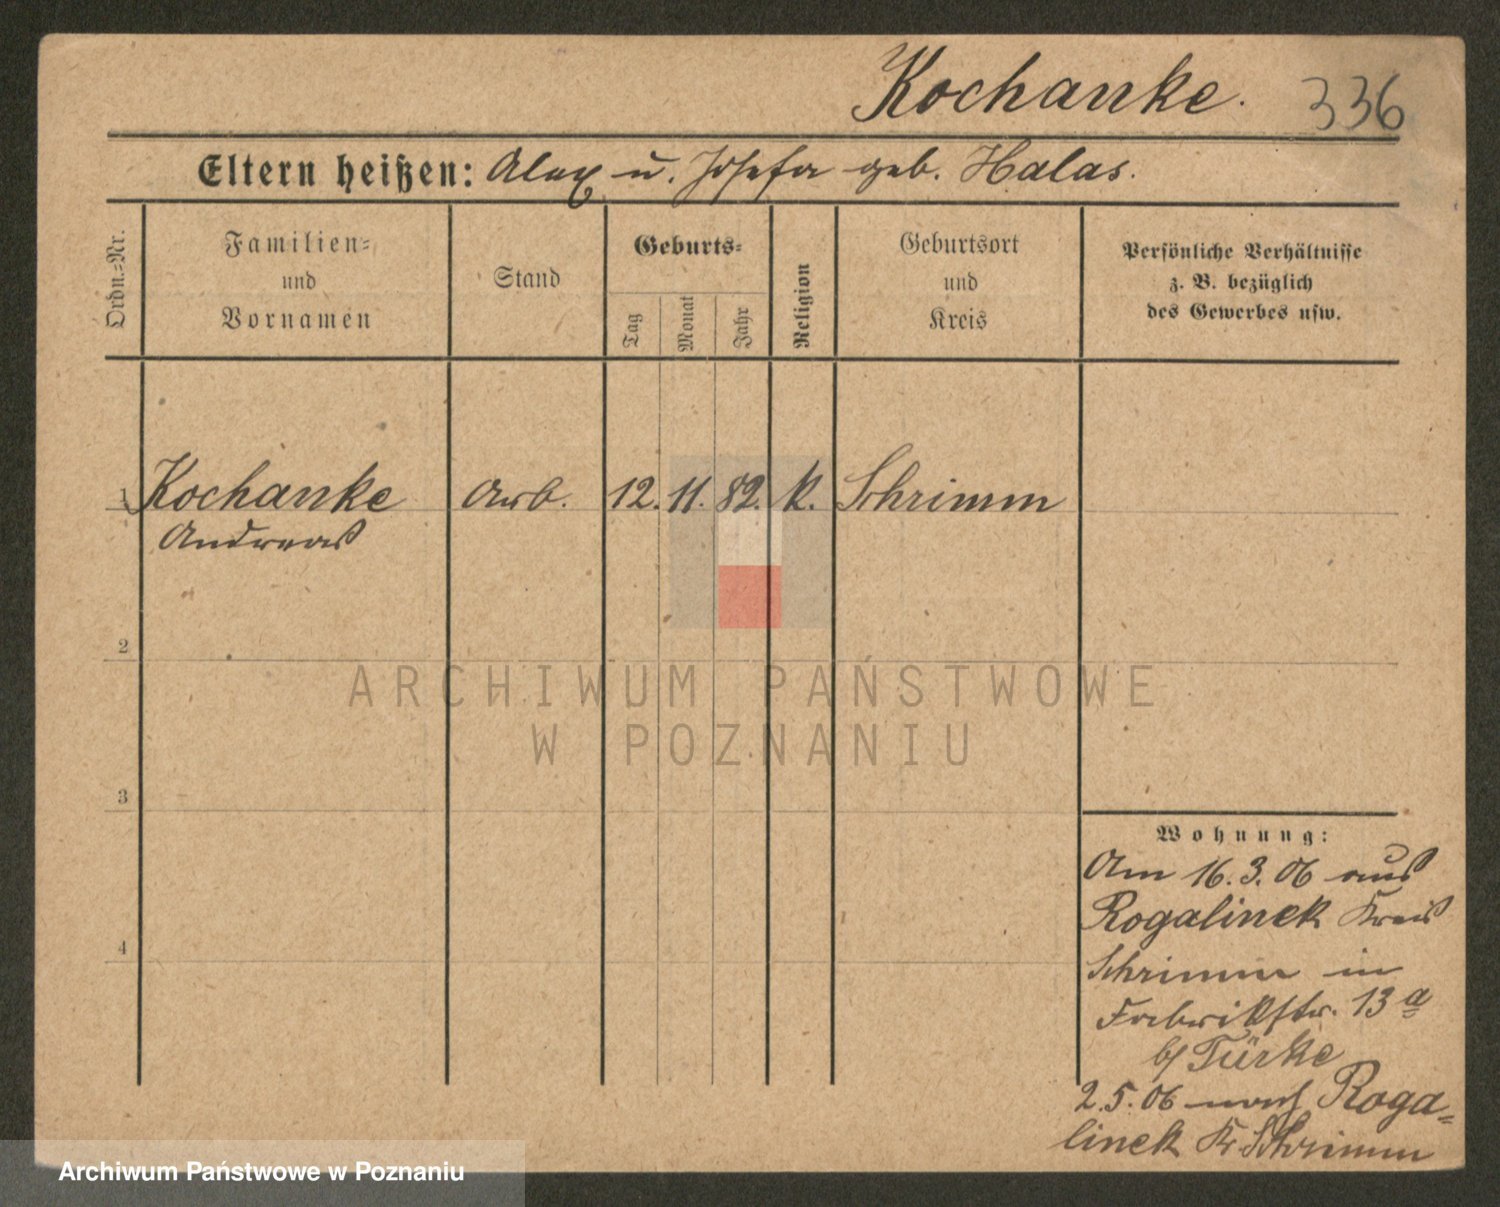 Kochanke.
336
Eltern heißen: Alex u. Josefa geb. Halas.
Ordn.-Nr.
Familien-
und
Vornamen
Stand
Geburts-
Tag
Monat
Jahr
Religion
Geburtsort
und
Kreis
Persönliche Verhältnisse
z. B. bezüglich
des Gewerbes usw.
1 Kochanke Arb. 12. 11. 82. k. Schrimm
Andreas
2
ARCHIWUM PAŃSTWOWE
W POZNANIU
3
Wohnung:
Am 16.3.06 aus
Rogalinek Kreis
4
Schrimm in
Fabrikstr. 13 a
b/ Türke
2.5.06 nach Roga-
linek Kr. Schrimm
Archiwum Państwowe w Poznaniu